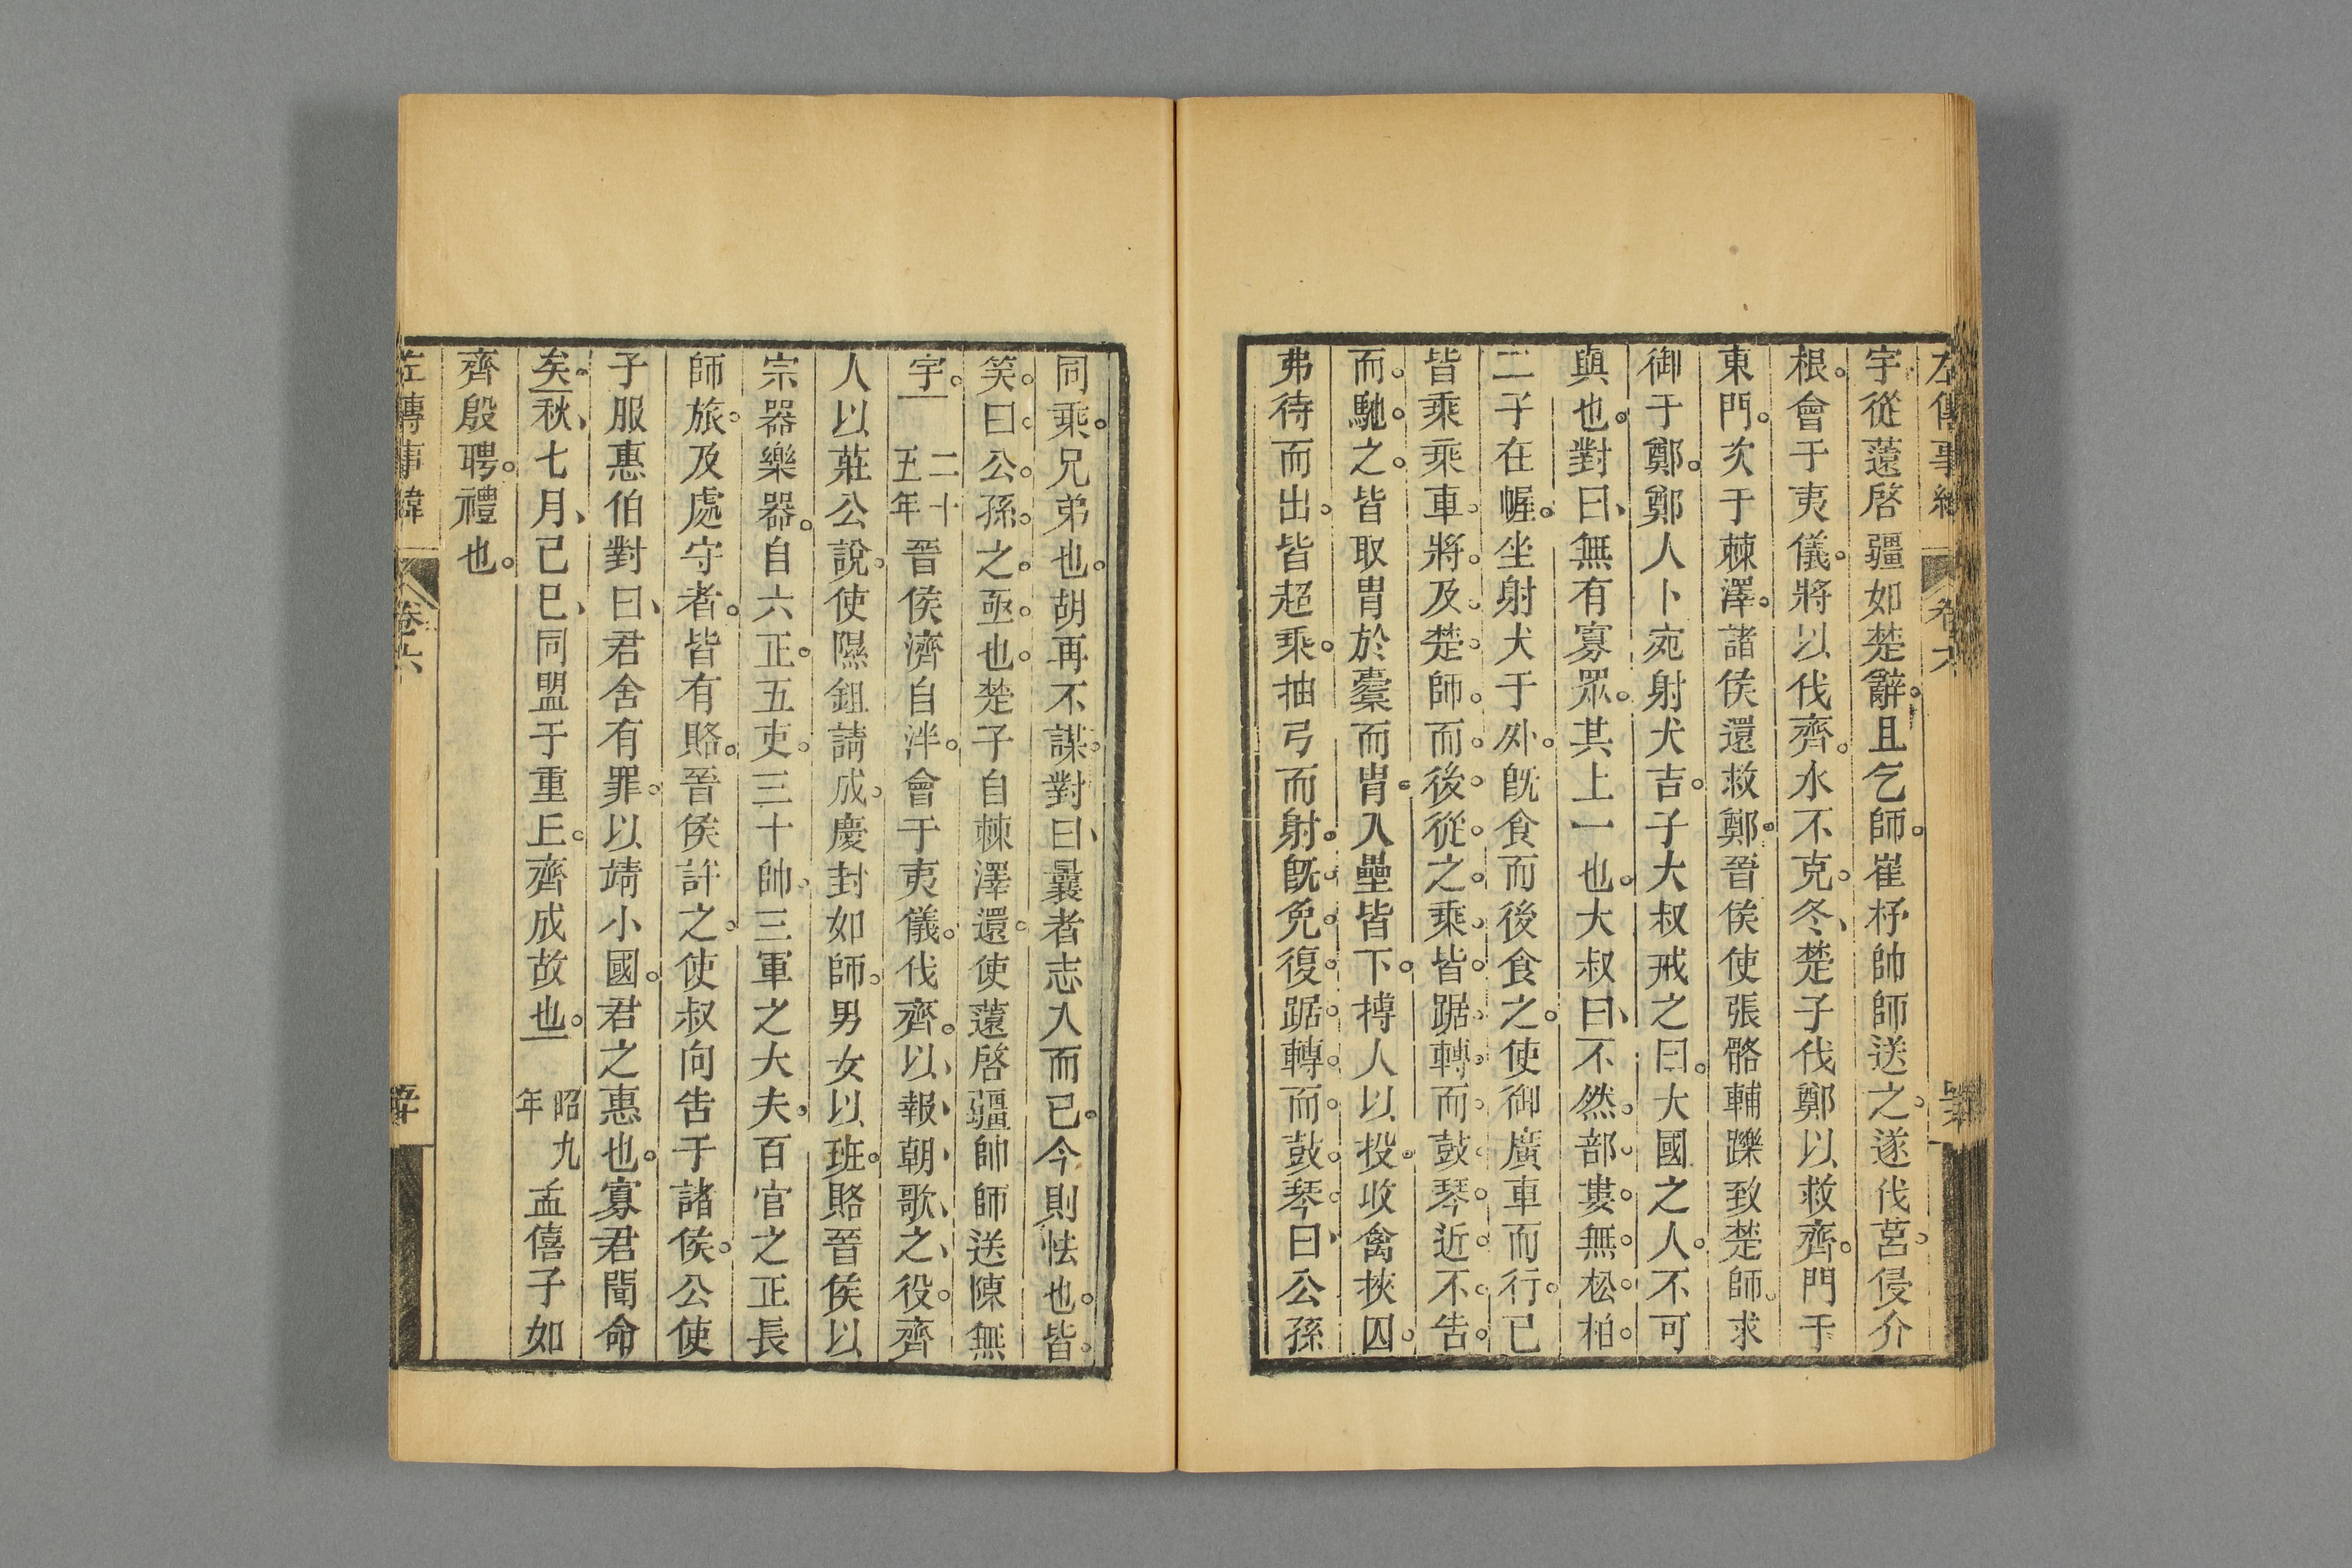 左傳事緯 卷六
宇從薳啓疆如楚辭且乞師崔杼帥師送之遂伐莒侵介
根會于夷儀將以伐齊水不克冬楚子伐鄭以救齊門于
東門次于棘澤諸侯還救鄭晉侯使張骼輔躒致楚師求
御于鄭鄭人卜宛射犬吉子大叔戒之曰大國之人不可
與也對曰無有寡眾其上一也大叔曰不然部婁無松柏
二子在幄坐射犬于外旣食而後食之使御廣車而行已
皆乘乘車將及楚師而後從之乘皆踞轉而鼓琴近不告
而馳之皆取胄於櫜而胄入壘皆下搏人以投收禽挾囚
弗待而出皆超乘抽弓而射旣免復踞轉而鼓琴曰公孫
同乘兄弟也胡再不謀對曰曩者志入而已今則怯也皆
笑曰公孫之亟也楚子自棘澤還使薳啓疆帥師送陳無
宇 二十五年 晉侯濟自泮會于夷儀伐齊以報朝歌之役齊
人以莊公說使隰鉏請成慶封如師男女以班賂晉侯以
宗器樂器自六正五吏三十帥三軍之大夫百官之正長
師旅及處守者皆有賂晉侯許之使叔向告于諸侯公使
子服惠伯對曰君舍有罪以靖小國君之惠也寡君聞命
矣秋七月己巳同盟于重丘齊成故也 昭九年 孟僖子如
齊殷聘禮也
左傳事緯 卷六